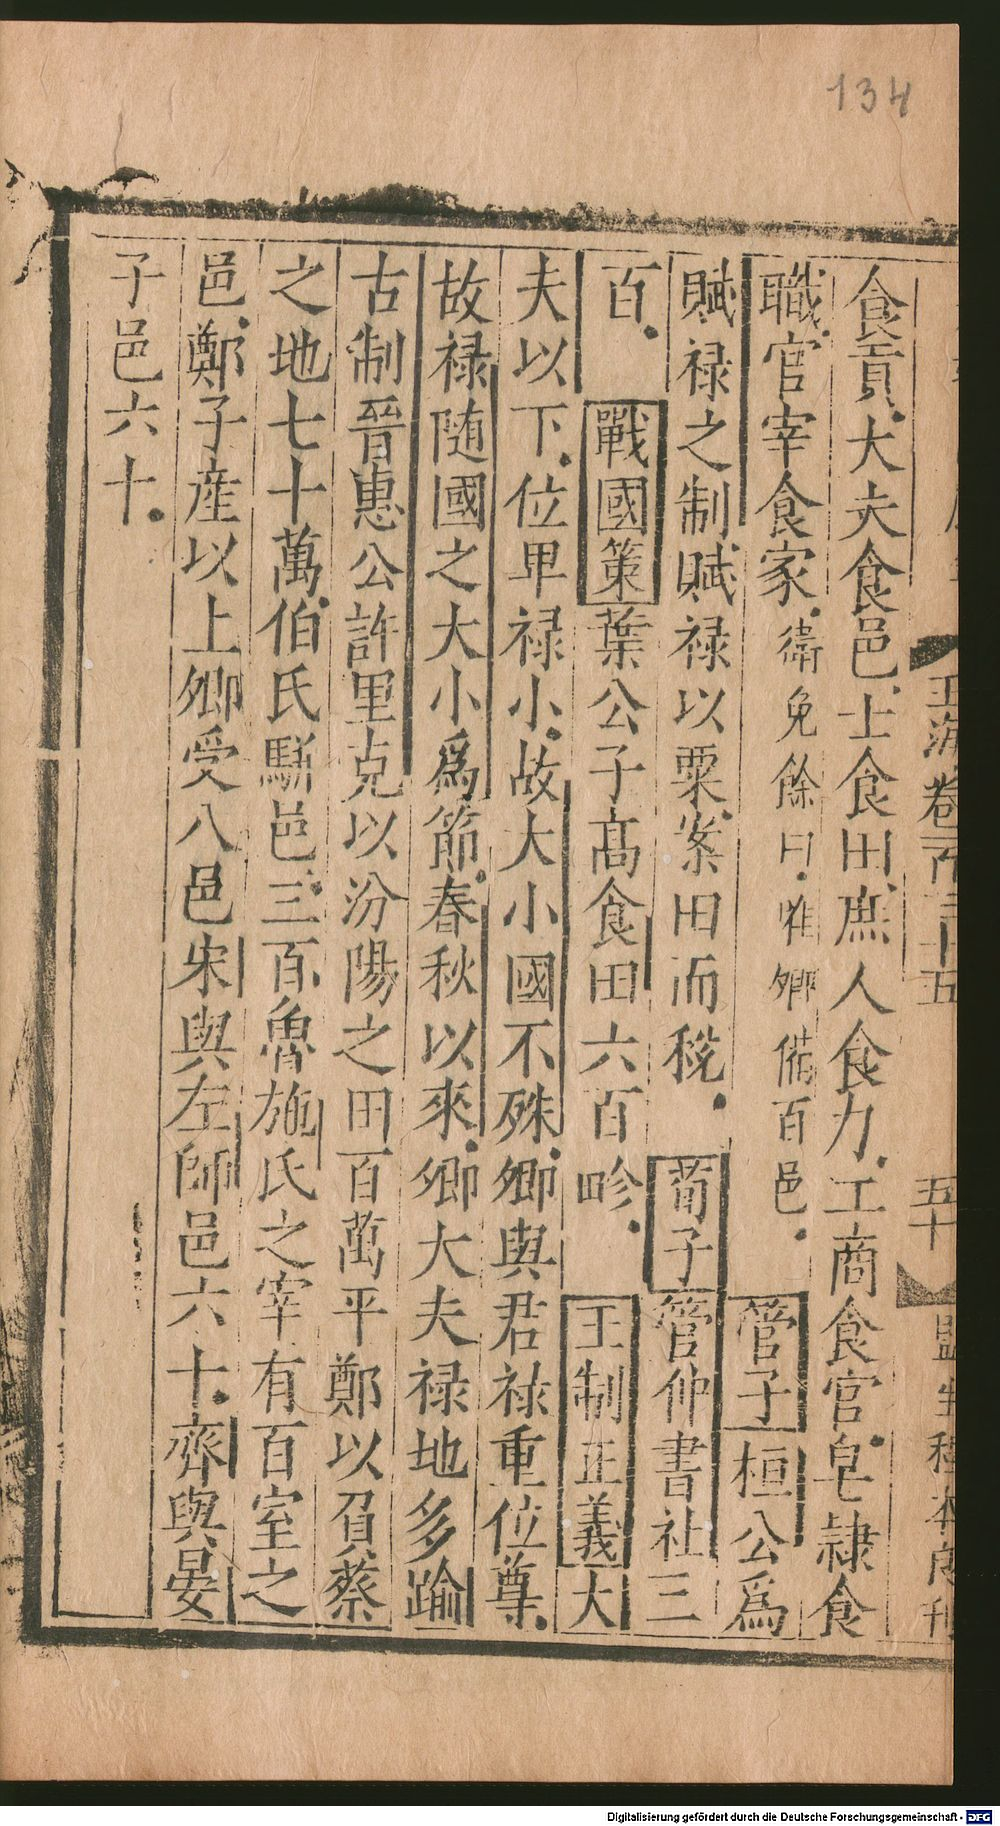 134
玉海卷一百三十五
五十
監生程本
食貢大夫食邑士食田庶人食力工商食官皂隸食
職官宰食家衛免餘曰惟卿備百邑管子桓公爲
賦禄之制賦禄以粟案田而稅荀子管仲書社三
百戰國策葉公子髙食田六百畛王制正義大
夫以下位卑禄小故大小國不殊卿與君禄重位尊
故禄随國之大小爲節春秋以來卿大夫禄地多踰
古制晉惠公許里克以汾陽之田百萬平鄭以負蔡
之地七十萬伯氏駢邑三百魯施氏之宰有百室之
邑鄭子産以上卿受八邑宋與左師邑六十齊與晏
子邑六十
Digitalisierung gefördert durch die Deutsche Forschungsgemeinschaft - DFG